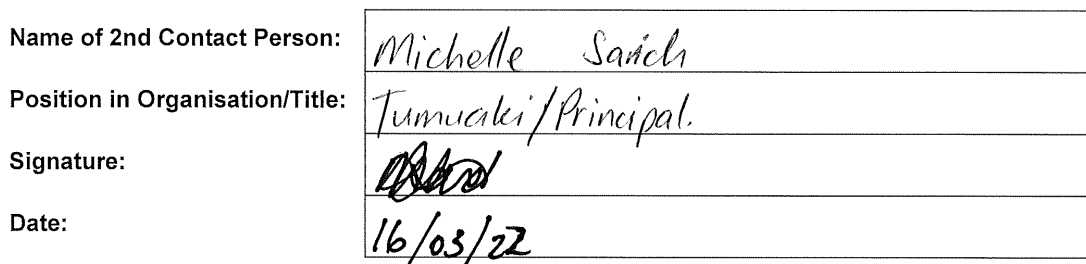 Name of 2nd Contact Person: Michelle Sarich
Position in Organisation/Title: Tumuaki/Principal.
Signature:
Date: 16/03/22